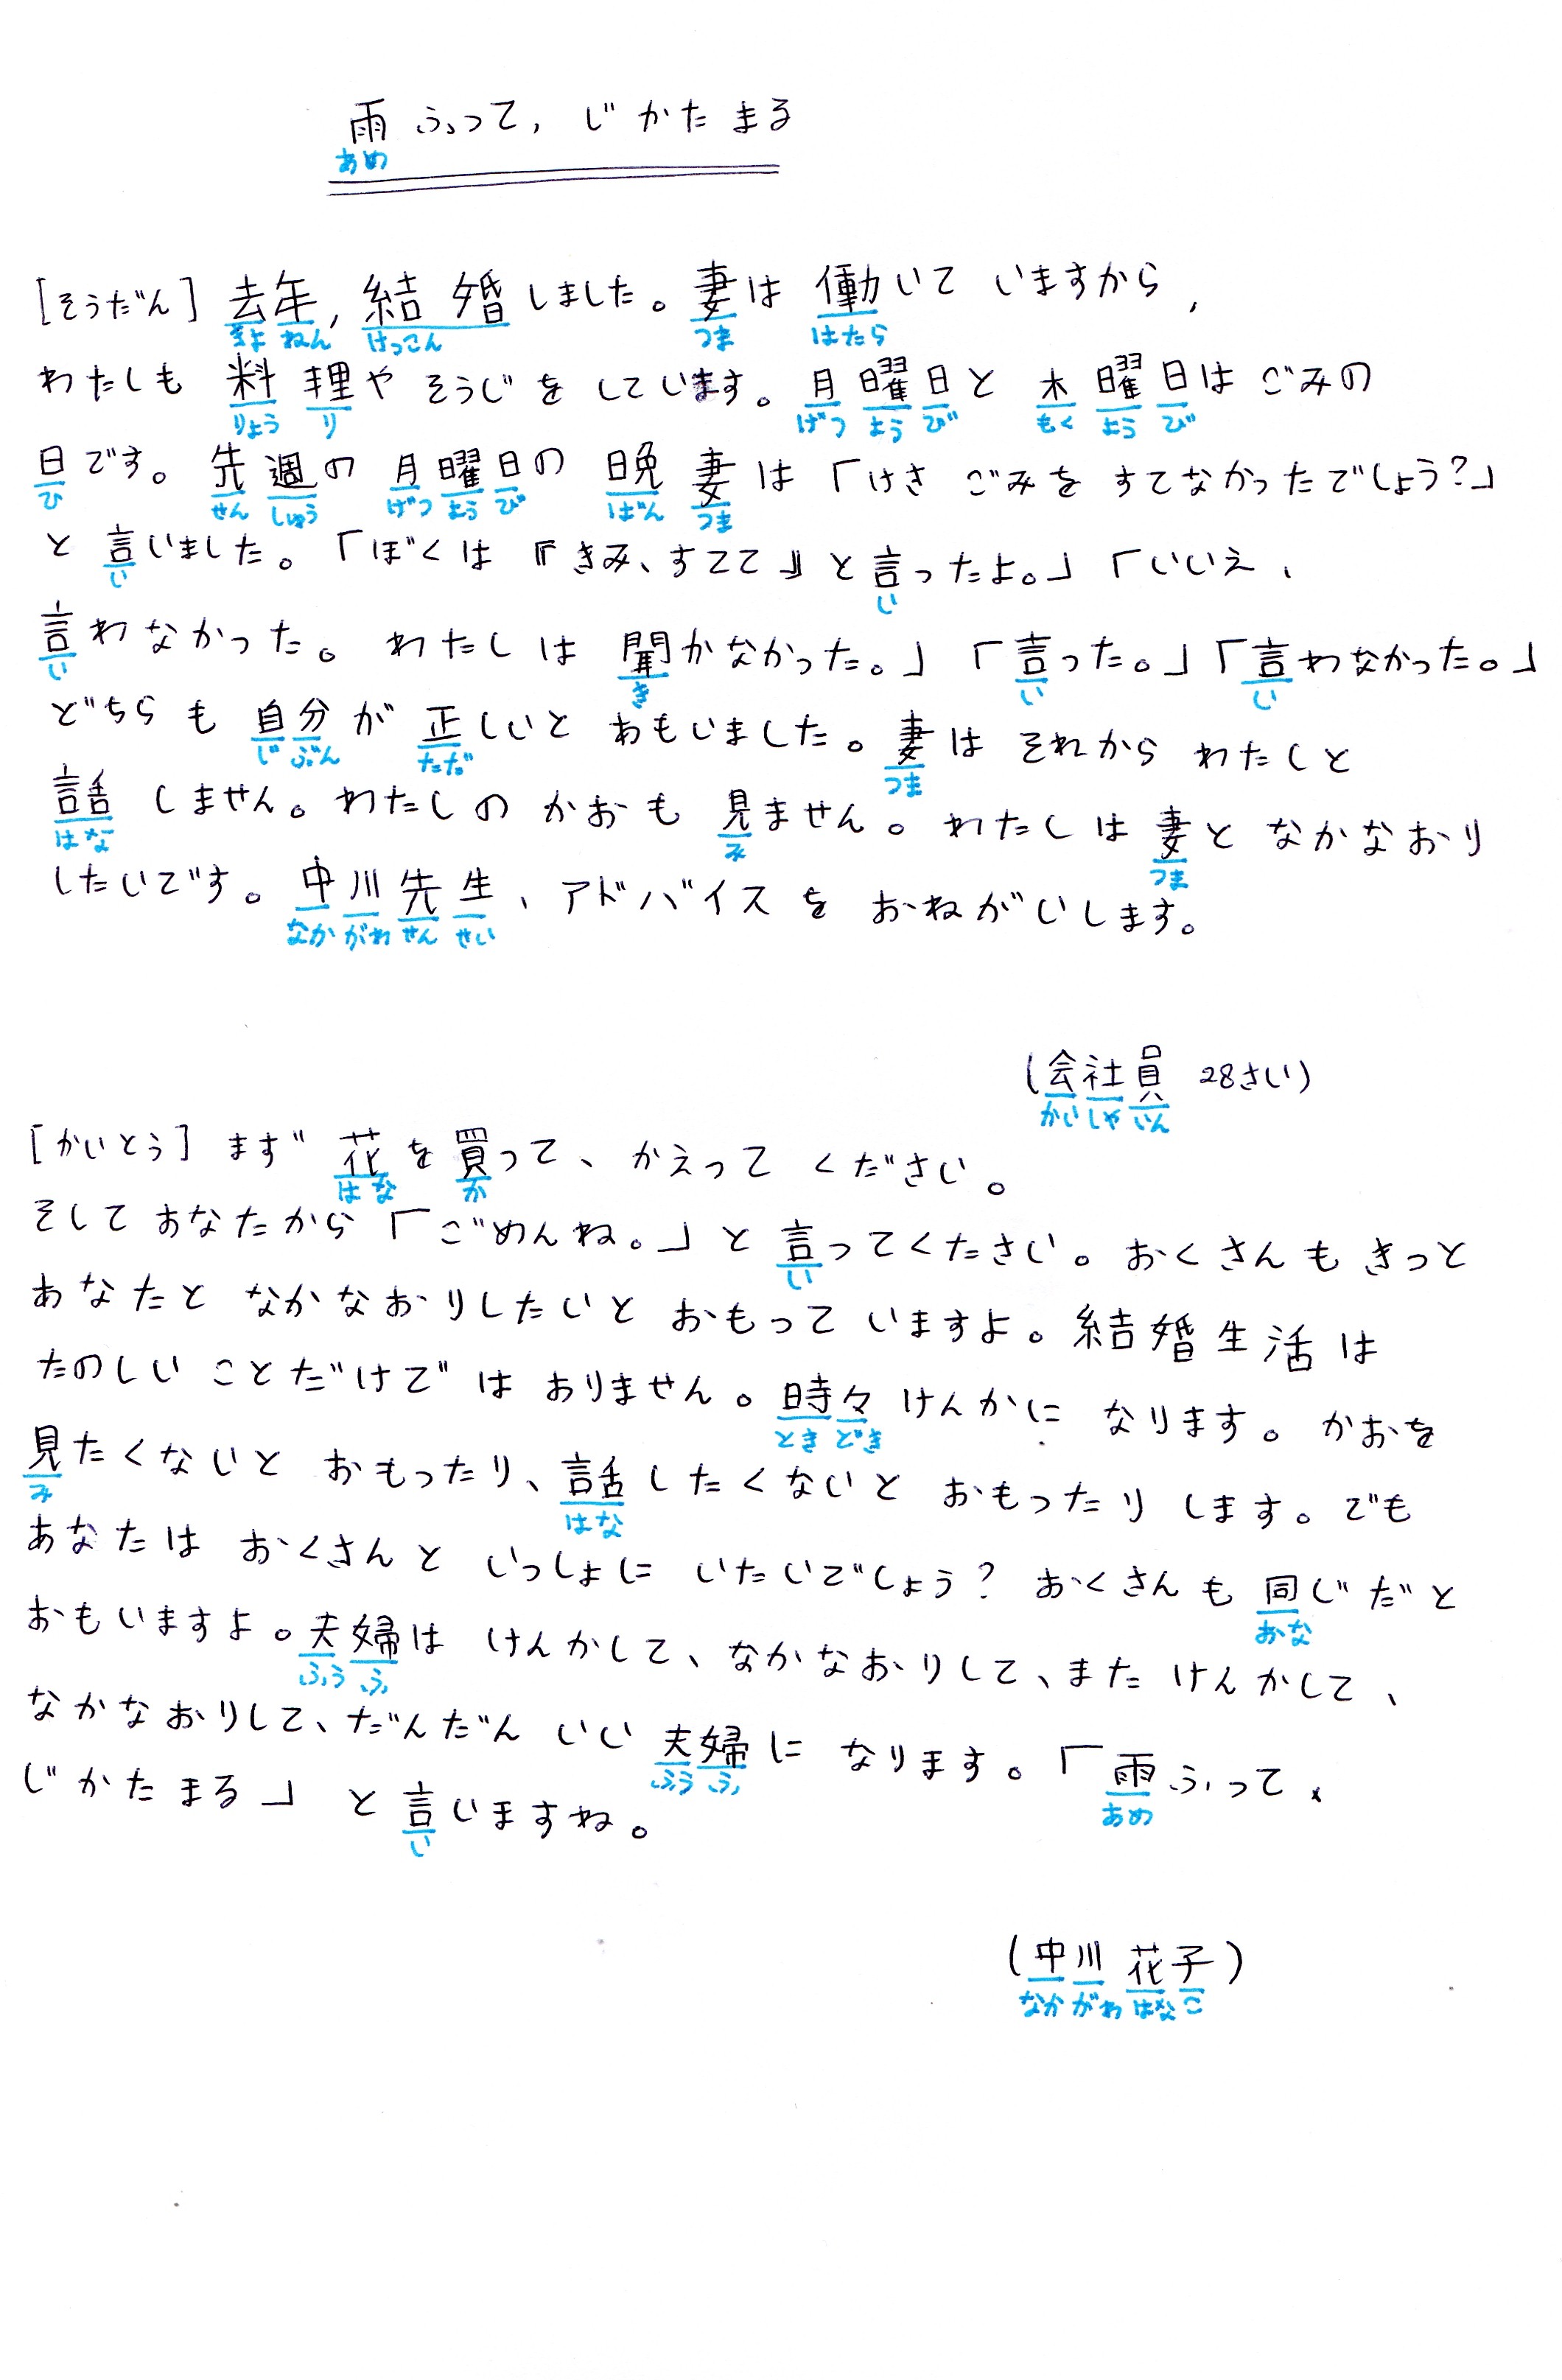 雨ふって,じかたまる
あめ
[そうだん]去年,結婚しました。妻は働いていますから,
きょ ねん けっこん つま はたら
わたしも料理やそうじをしています。月曜日と木曜日はごみの
りょう り げつ よう び もく よう び
日です。先週の月曜日の晩妻は「けさごみをすてなかったでしょう?」
ひ せん しゅう げつ よう び ばん つま
と言いました。「ぼくは『きみ、すてて』と言ったよ。」「いいえ、
い い
言わなかった。わたしは聞かなかった。」「言った。」「言わなかった。」
い き い い
どちらも自分が正しいとおもいました。妻はそれからわたしと
じ ぶん ただ つま
話しません。わたしのかおも見ません。わたしは妻となかなおり
はな み つま
したいです。中川先生、アドバイスをおねがいします。
なか がわ せん せい
(会社員 28さい)
かい しゃ いん
[かいとう]まず花を買って、かえってください。
はな か
そしてあなたから「ごめんね。」と言ってくたさい。おくさんもきっと
い
あなたとなかなおりしたいとおもっていますよ。結婚生活は
たのしいことだけではありません。時々けんかになります。かおを
とき どき
見たくないとおもったり、話したくないとおもったりします。でも
み はな
あなたはおくさんといっしょにいたいでしょう?おくさんも同じだと
おな
おもいますよ。夫婦はけんかして、なかなおりして、またけんかして、
ふう ふ
なかなおりして、だんだんいい夫婦になります。「雨ふって、
ふう ふ あめ
じかたまる」と言いますね。
い
(中川花子)
なか がわ はな こ